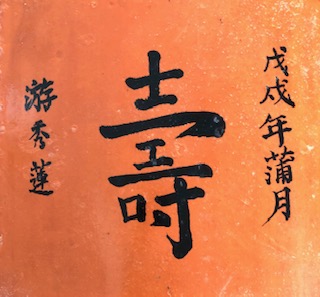 戊戌年蒲月
壽
游秀蓮